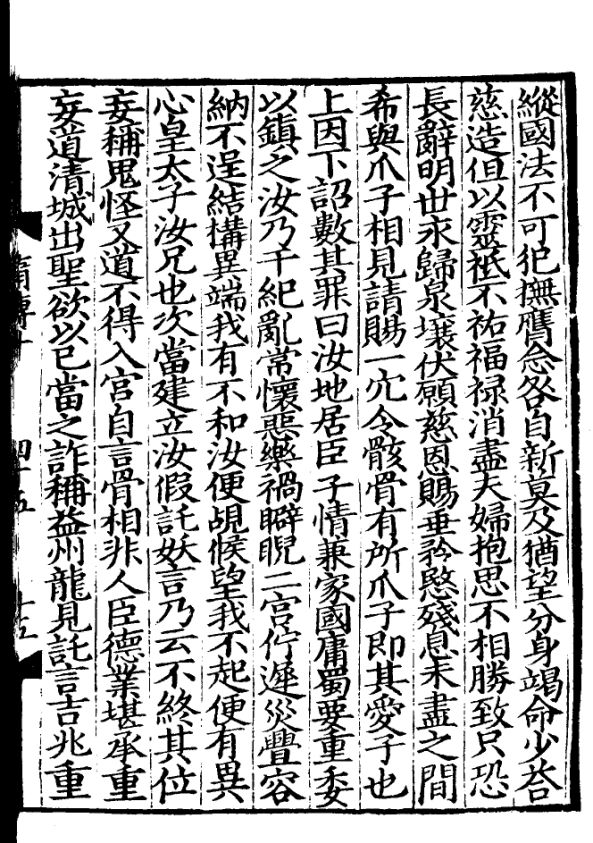 縱國法不可犯撫膺念咎自新莫及猶望分身竭命少荅
慈造但以靈祇不祐福禄消盡夫婦抱思不相勝致只恐
長辭明世永歸泉壤伏願慈恩賜垂矜愍殘息未盡之間
希與爪子相見請賜一穴令骸骨有所爪子即其愛子也
上因下詔數其罪曰汝地居臣子情兼家國庸蜀要重委
以鎮之汝乃干紀亂常懷惡樂禍睥睨二宫佇遲災釁容
納不逞結構異端我有不和汝便覘候望我不起便有異
心皇太子汝兄也次當建立汝假託妖言乃云不終其位
妄稱鬼怪又道不得入宫自言骨相非人臣德業堪承重
妄道清城出聖欲以已當之詐稱益州龍見託言吉兆重
四十五